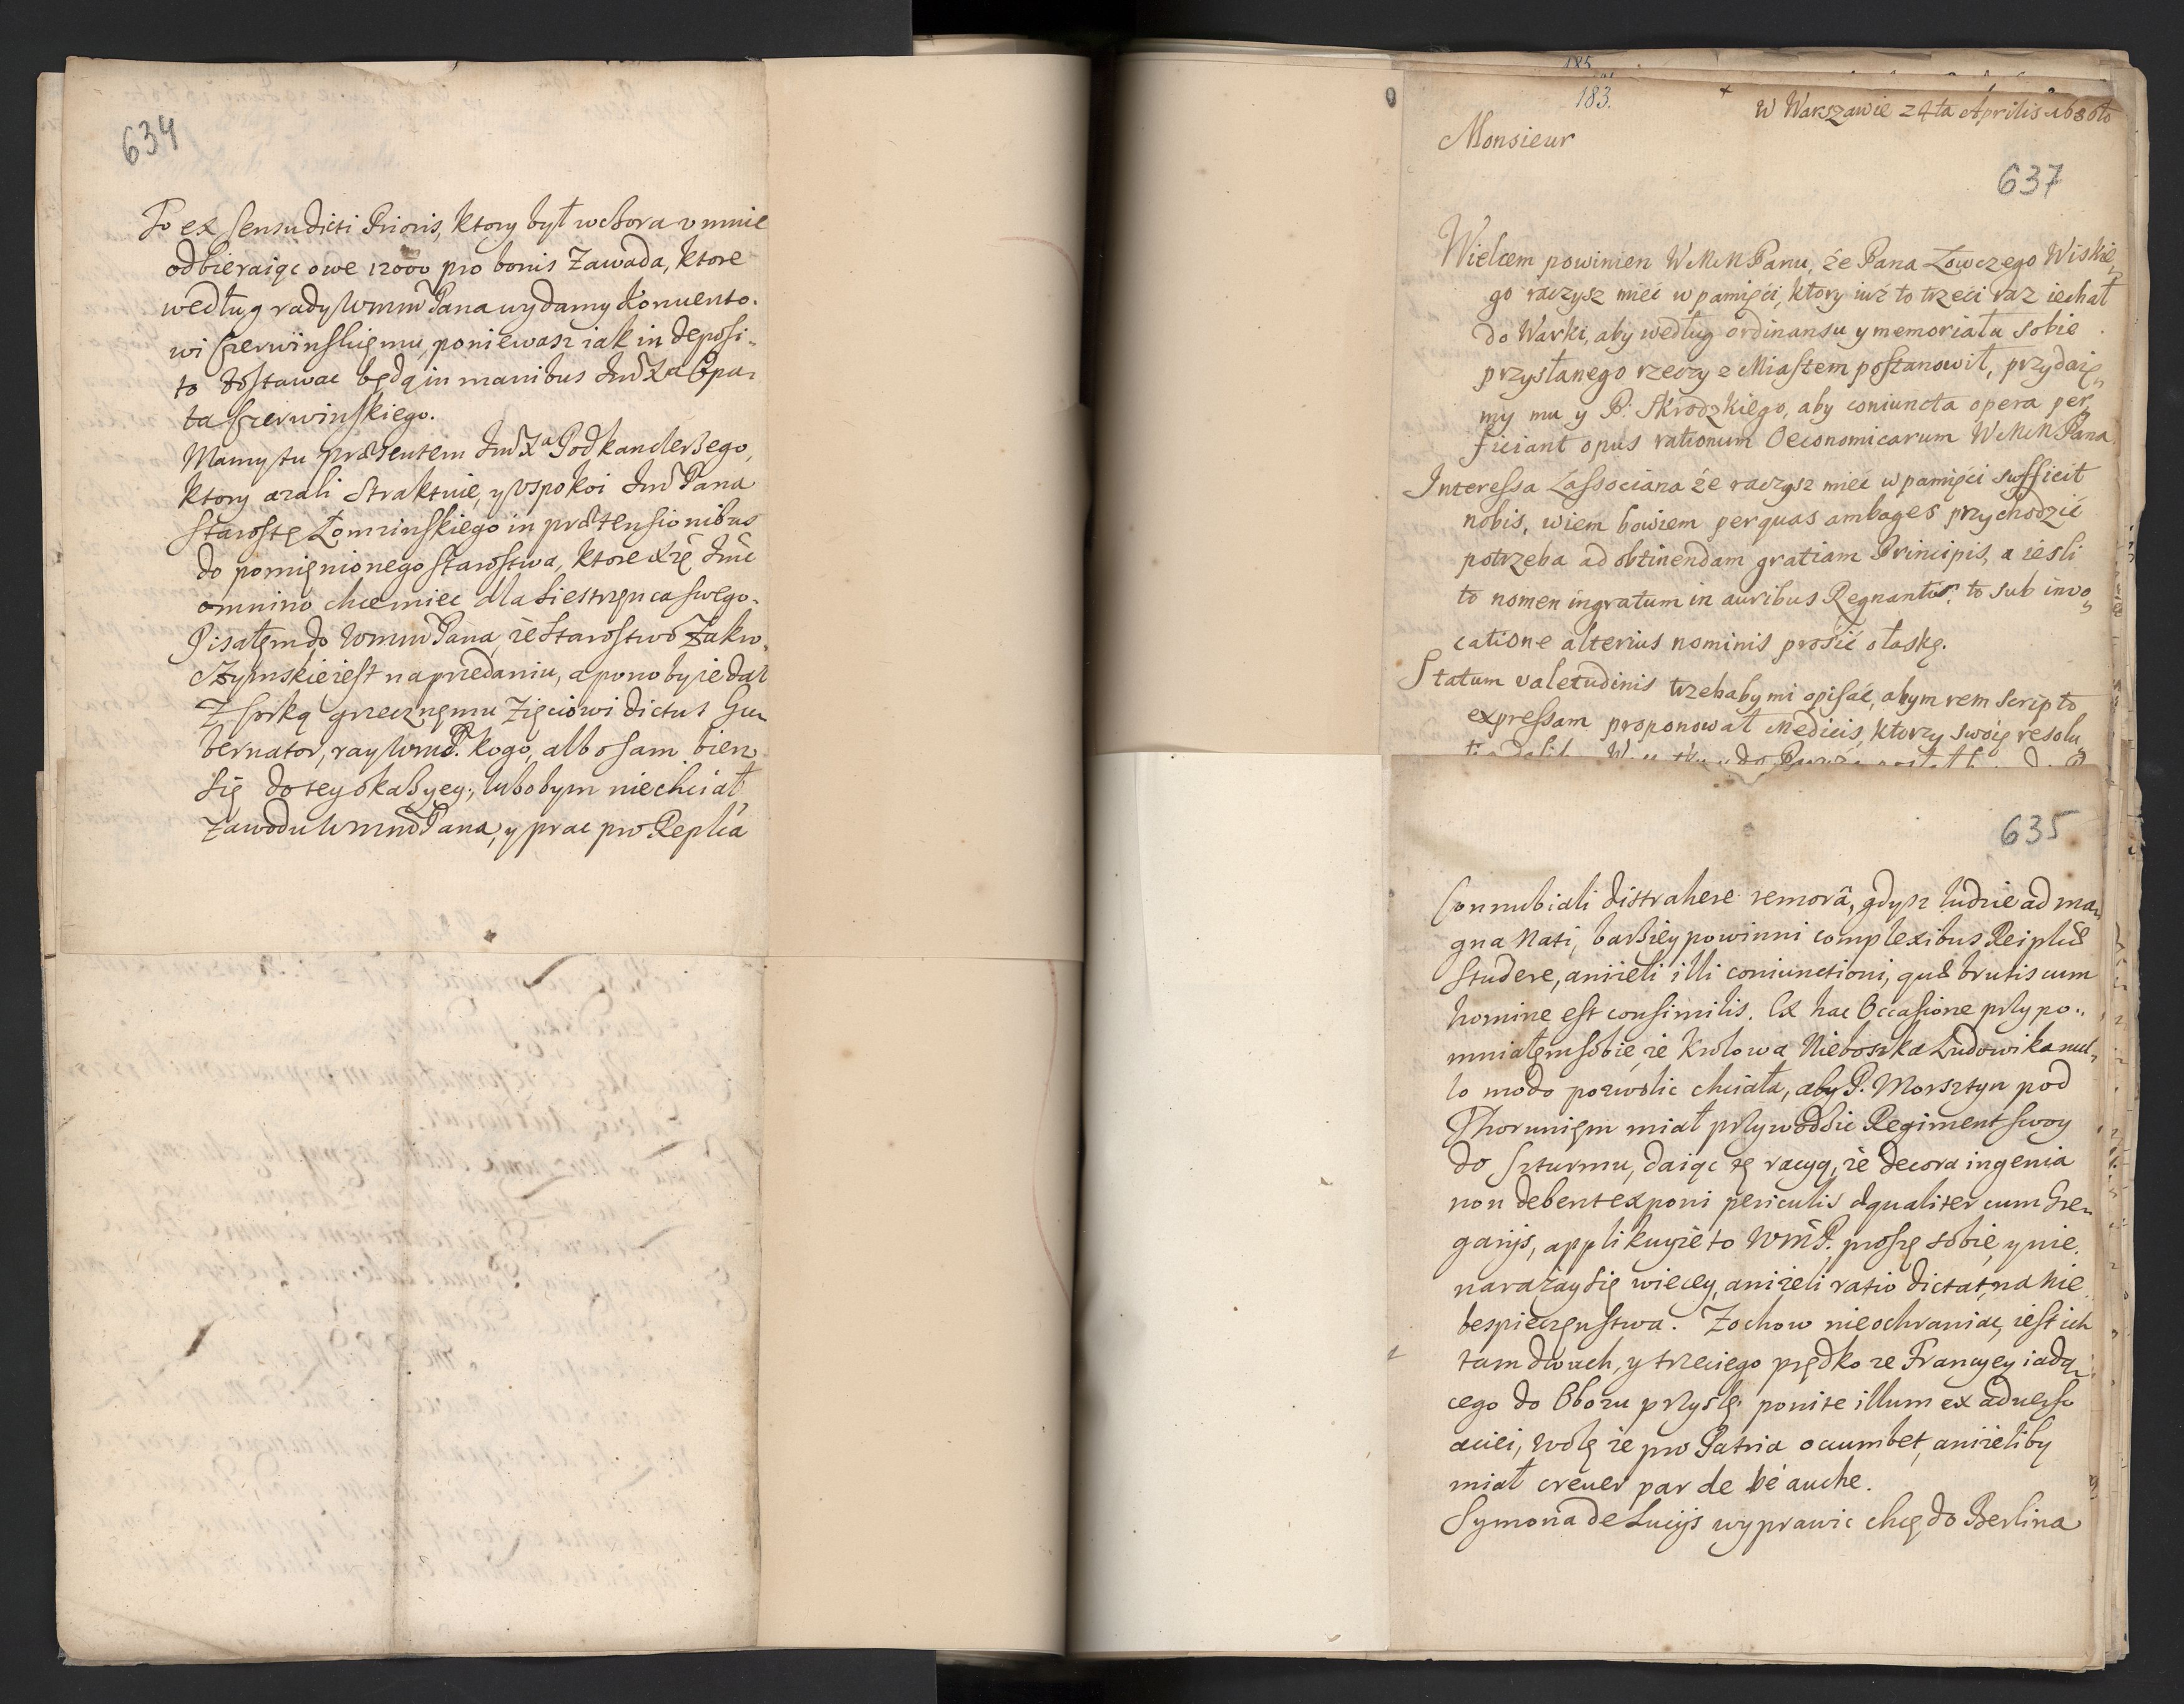 634
To ex sensu dicti Prioris, ktory był wczora v mnie
odbieraiąc owe 12000 pro bonis Zawada, ktore
według rady WMM Pana wydamy Konuento-
wi Czerwinskięmu, poniewasz iak in deposi-
to zostawac będą in manibus Jmć Xa Opa-
ta Czerwinskiego.
Mamy tu præsentem Jmć Xa Podkanclerzego,
ktory azali ztraktuie, y vspokoi Jmć Pana
Starostę Łomzinskiego in prætensionibus
do pomięnionego starostwa, ktore Xżę Jmć
omnino chce miec dla siestrzęnca swego.
Pisałęm do WMM Pana, że starostwo Zakro-
czymskie iest na przedaniu, a pono by ie dał
z corką grzecznęmu zięciowi dictus Gu-
bernator, ray WMP. kogo, albo sam bierz
się do tey okazyey, lubobym niechciał
zawodu WMM Pana, y prac pro Repca
185
183.
W Warszawie 24ta Aprilis 1680to
Monsieur
637
Wielcem powinien WMM Panu, że Pana Łowczego Wiskie-
go raczysz mieć w pamięci, ktory iuż to trzeci raz iechał
do Warki, aby według ordinansu y memoriału sobie
przysłanego rzeczy z Miastem postanowił, przydaię-
my mu y P. Skrodzkiego, aby coniuncta opera per-
ficiant opus rationum Oeconomicarum WMM Pana
Interessa Lassociana że raczysz mieć w pamięci sufficit
nobis, wiem bowiem per quas ambages przychodzić
potrzeba ad obtinendam gratiam Principis, a iesli
to nomen ingratum in auribus Regnantis, to sub invo-
catione alterius nominis prosić o łaskę.
Statum valetudinis trzebaby mi opisać, abym rem scripto
expressam proponował Medicis, ktorzy swoię resolu-
635
Connubiali distrahere remorâ, gdysz ludzie ad ma-
gna nati, barziey powinni complexibus Reiplcæ
studere, anizeli illi coniunctioni, quæ brutis cum
homine est consimilis. Ex hac Occasione przypo-
mniałęm sobie, że Krolowa Nieboszka Ludowika nul-
lo modo pozwolic chciała, aby P. Morsztyn pod
Thorunięm miał przywodzic Regiment swoy
do szturmu, daiąc tę racyą, że decora ingenia
non debent exponi periculis æqualiter cum Gre-
garijs, applikuyże to WMP. proszę sobie, y nie
narażay się wiecey, aniżeli ratio dictat, na nie
bespieczęnstwa. Zochow nieochraniac, iest ich
tam dwuch, y trzeciego prędko ze Francyey iadą-
cego do Obozu przyslę, ponite illum ex aduerso
aciei, wolę że pro Patria ocumbet, aniżeliby
miał creuer par de béauche.
Symona de Lucijs wyprawic chcę do Berlina